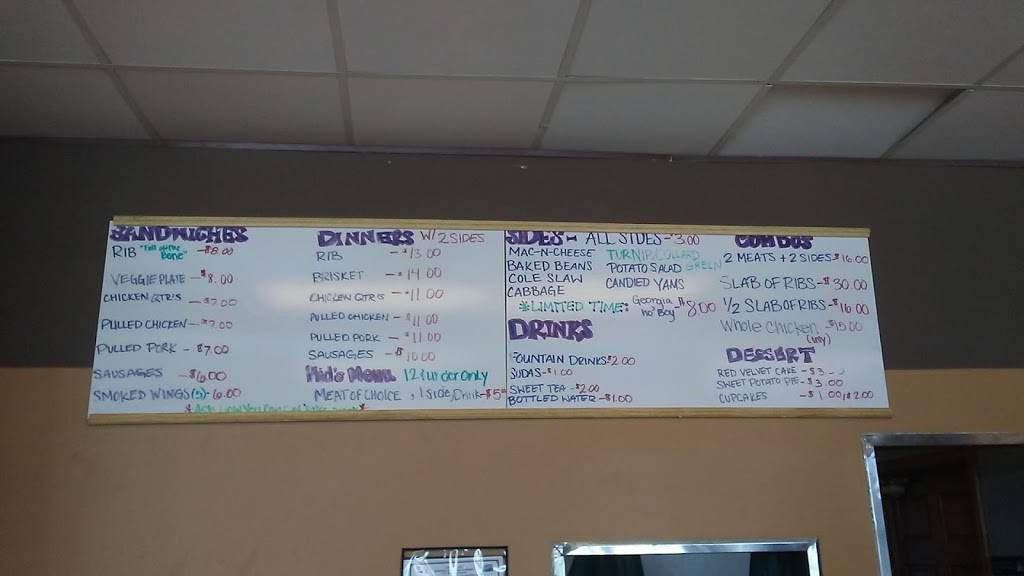 SANDWICHES
RIB "Fall off the Bone" -$8.00
VEGGIE PLATE - $8.00
CHICKEN QTR'S - $7.00
PULLED CHICKEN - $7.00
PULLED PORK - $7.00
SAUSAGES - $6.00
SMOKED WINGS (5) - 6.00
DINNERS W/ 2 SIDES
RIB - $13.00
BRISKET - $14.00
CHICKEN QTR'S - $11.00
PULLED CHICKEN - $11.00
PULLED PORK - $11.00
SAUSAGES - $10.00
Kid's Menu 12 & under only
MEAT OF CHOICE, 1 side, Drink - $5
SIDES - ALL SIDES - $3.00
MAC-N-CHEESE TURNIP, COLLARD
BAKED BEANS POTATO SALAD GREEN
COLE SLAW CANDIED YAMS
CABBAGE
*LIMITED TIME: Georgia "ho" Boy $8.00
DRINKS
FOUNTAIN DRINKS $2.00
SODAS - $1.00
SWEET TEA - $2.00
BOTTLED WATER - $1.00
COMBOS
2 MEATS + 2 SIDES $16.00
SLAB OF RIBS - $30.00
1/2 SLAB OF RIBS - $16.00
Whole Chicken $15.00
(only)
DESSERT
RED VELVET CAKE - $3
SWEET POTATO PIE - $3.00
CUPCAKES - $1.00, $2.00